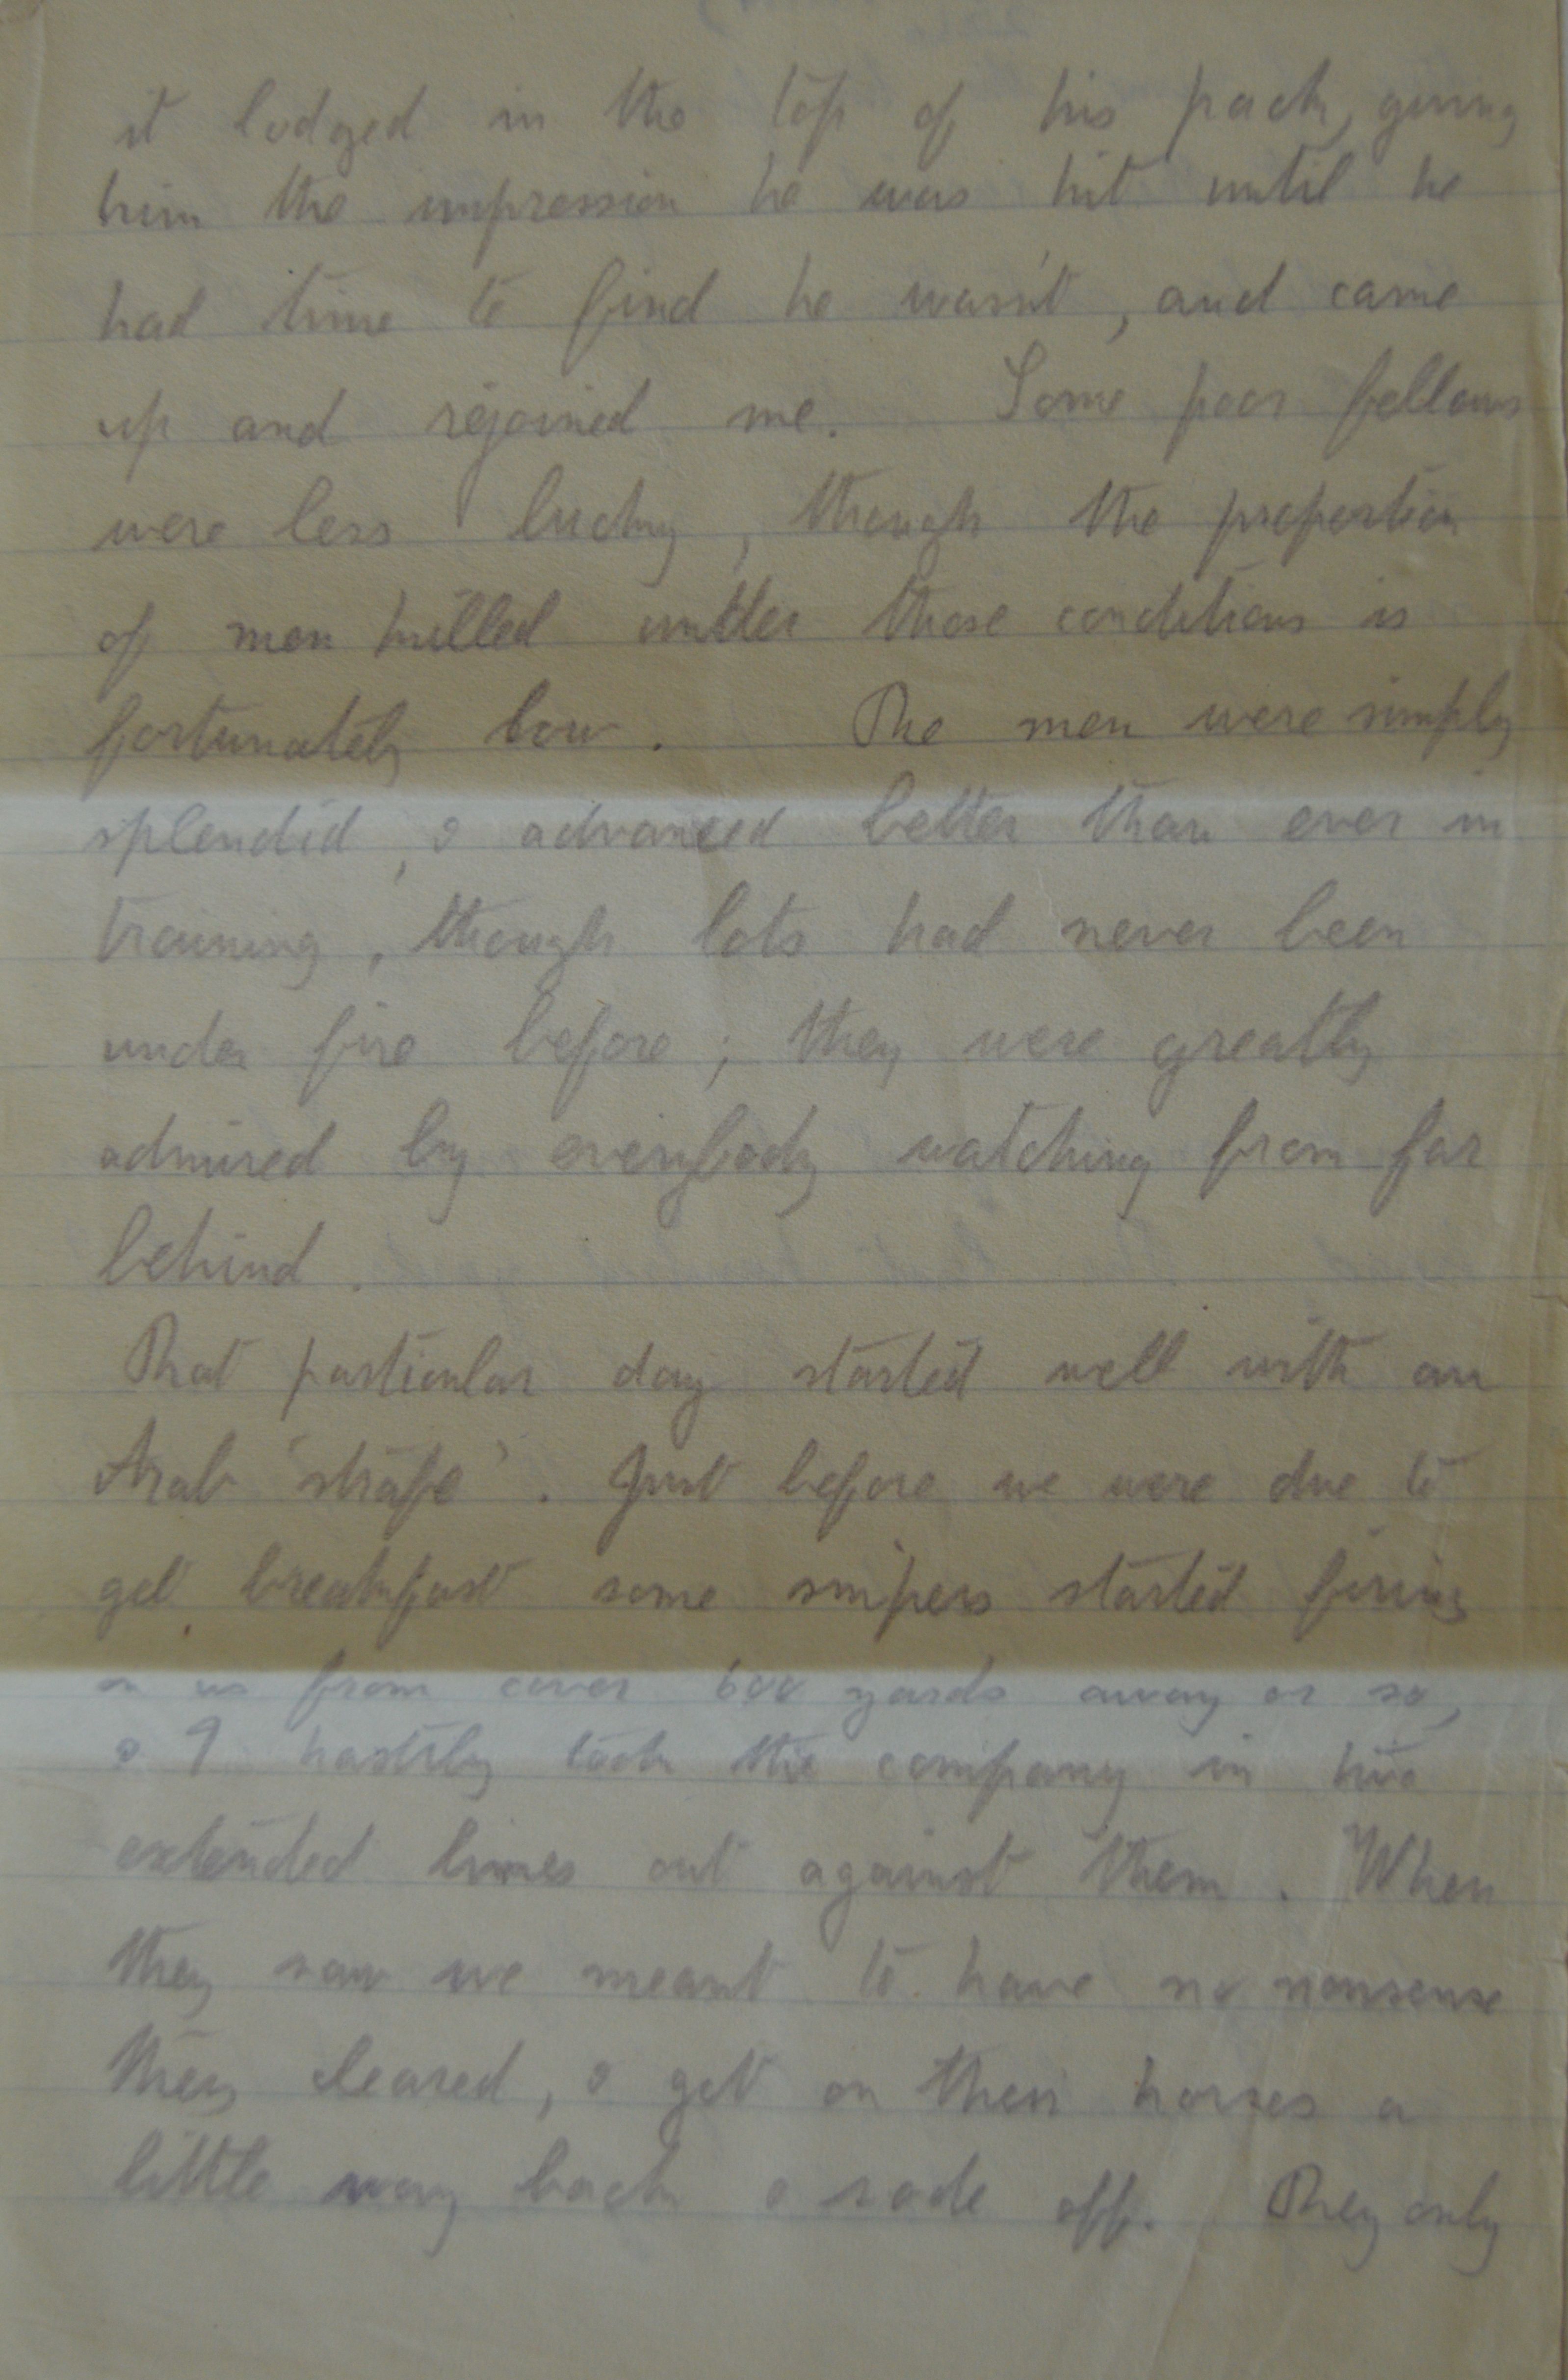 it lodged in the top of his pack, giving
him the impression he was hit until he
had time to find he wasn't, and came
up and rejoined me. Some poor fellows
were less lucky, though the proportion
of men killed under those conditions is
fortunately low. The men were simply
splendid, & advanced better than ever in
training, though lots had never been
under fire before; they were greatly
admired by everybody watching from far
behind.
That particular day started well with an
Arab 'strafe'. Just before we were due to
get breakfast some snipers started firing
on us from cover 600 yards away or so,
& I hastily took the company in two
extended lines out against them. When
they saw we meant to have no nonsense
they cleared, & got on their horses a
little way back & rode off. They only